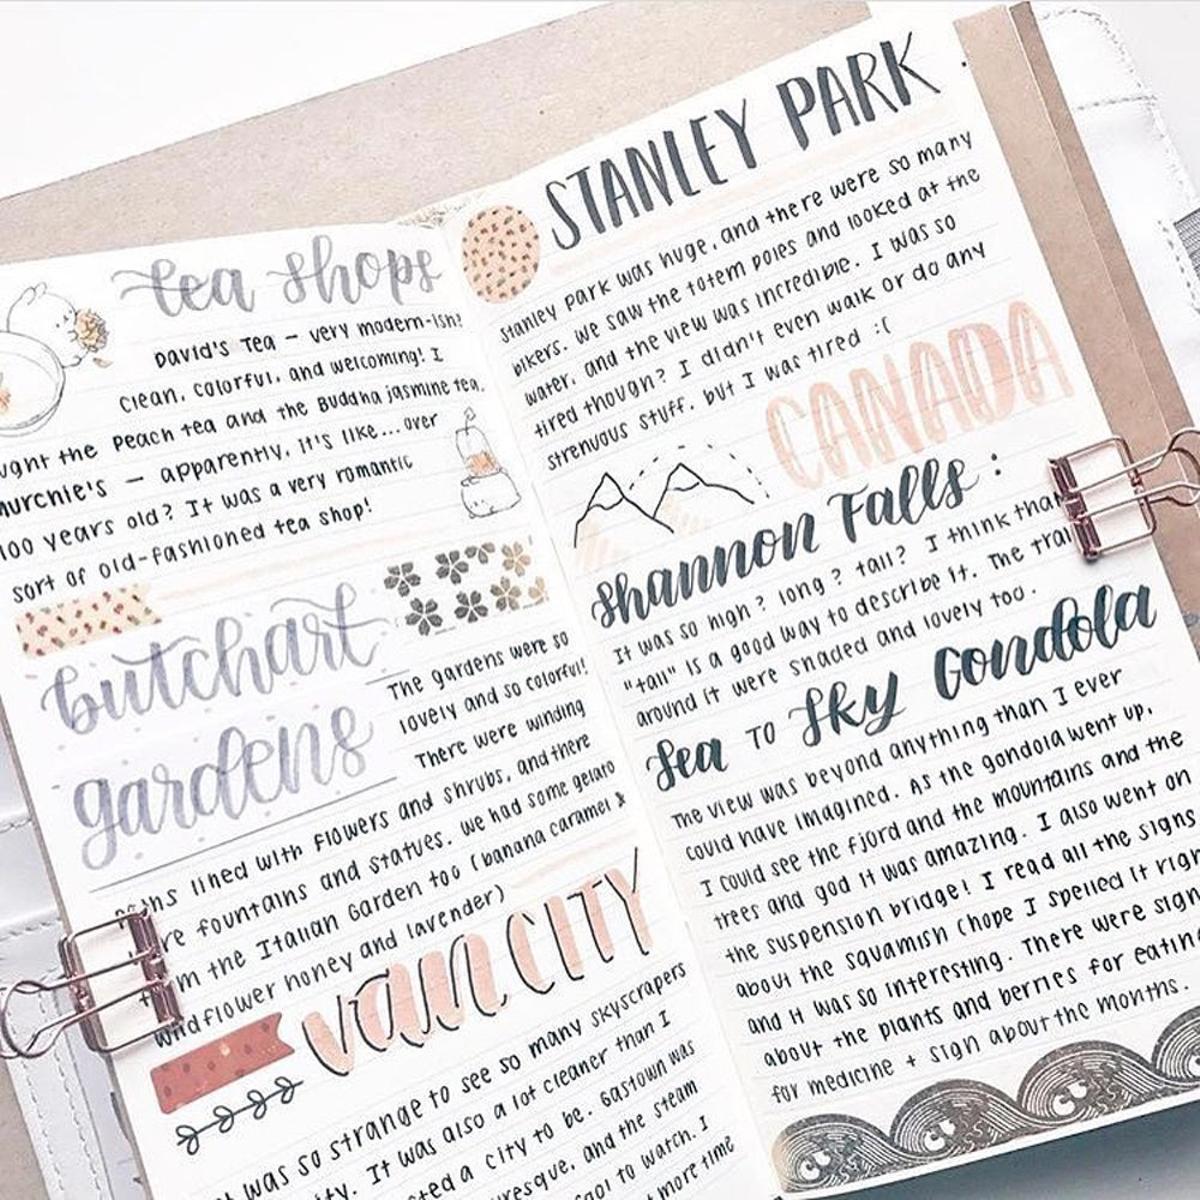 tea shops
David's Tea – very modern-ish?
clean, colorful, and welcoming! I
the Peach tea and the Buddha jasmine tea.
Murchie's – apparently, it's like... over
100 years old? It was a very romantic
sort of old-fashioned tea shop!
butchart
gardens
The gardens were so
lovely and so colorful!
There were winding
lined with flowers and shrubs, and there
fountains and statues. We had some gelato
the Italian Garden too (banana caramel &
wildflower honey and lavender)
van CITY
was so strange to see so many skyscrapers
It was also a lot cleaner than I
a city to be. Gastown was
and the steam
to watch. I
more time
STANLEY PARK
Stanley Park was huge, and there were so many
bikers. We saw the totem poles and looked at the
water, and the view was incredible. I was so
tired though? I didn't even walk or do any
strenuous stuff, but I was tired :(
CANADA
Shannon Falls :
It was so high? long? tall? I think that
"tall" is a good way to describe it. The
around it were shaded and lovely too.
Sea TO Sky Gondola
The view was beyond anything than I ever
could have imagined. As the gondola went up,
I could see the fjord and the mountains and the
trees and god it was amazing. I also went on
the suspension bridge! I read all the signs
about the Squamish (hope I spelled it
and it was so interesting. There were
about the plants and berries for eating
for medicine + sign about the months.